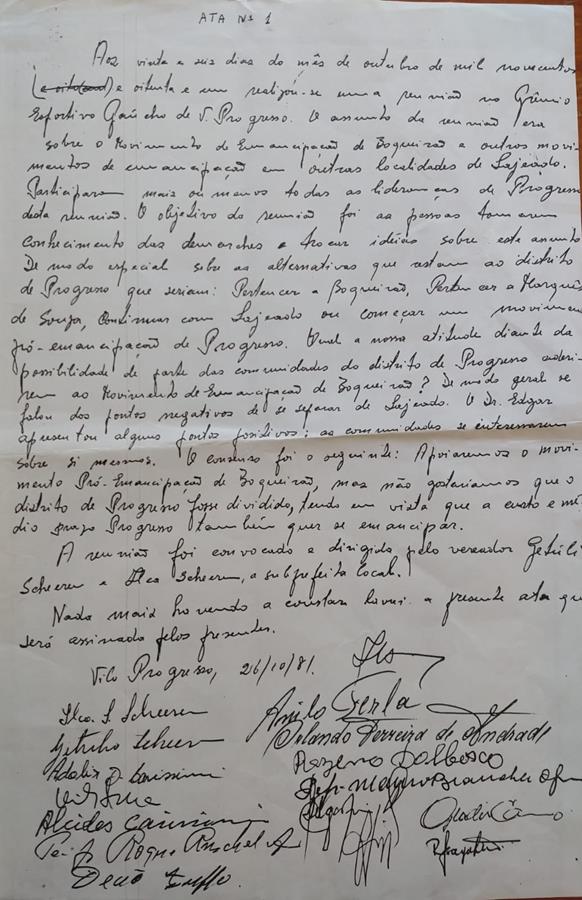 ATA Nº 1
Aos vinte e seis dias do mês de outubro de mil novecentos
e oitenta e um realizou-se uma reunião no Grêmio
Esportivo Gaúcho de V. Progresso. O assunto da reunião era
sobre o Movimento de Emancipação de Boqueirão e outros movi-
mentos de emancipação em outras localidades de Lajeado.
Participaram mais ou menos todas as lideranças de Progresso
desta reunião. O objetivo da reunião foi as pessoas tomarem
conhecimento das demarches e trocar idéias sobre este assunto
De modo especial sobre as alternativas que restam ao distrito
de Progresso que seriam: Pertencer a Boqueirão, Pertencer a Marquês
de Souza, Continuar com Lajeado ou começar um movimen
pró-emancipação de Progresso. Qual a nossa atitude diante da
possibilidade de parte das comunidades do distrito de Progresso aderi-
rem ao Movimento de Emancipação de Boqueirão? De modo geral se
falou dos pontos negativos de se separar de Lajeado. O Dr. Edgar
apresentou alguns pontos positivos: as comunidades se interessarem
sobre si mesmas. O consenso foi o seguinte: Apoiaremos o movi-
mento Pró-Emancipação de Boqueirão, mas não gostaríamos que o
distrito de Progresso fosse dividido, tendo em vista que a curto e mé-
dio prazo Progresso também quer se emancipar.
A reunião foi convocada e dirigida pelo vereador Getúli
Scheeren e Ilco Scheeren, o subprefeito local.
Nada mais havendo a constar lavrei a presente ata que
será assinada pelos presentes.
Vila Progresso, 26/10/81.
Ilco. S. Scheeren
Anilo Ferla
Getulio Scheeren
Orlando Ferreira de Andrade
Rogerio Dalbosco
Alcides
Roque
Decio